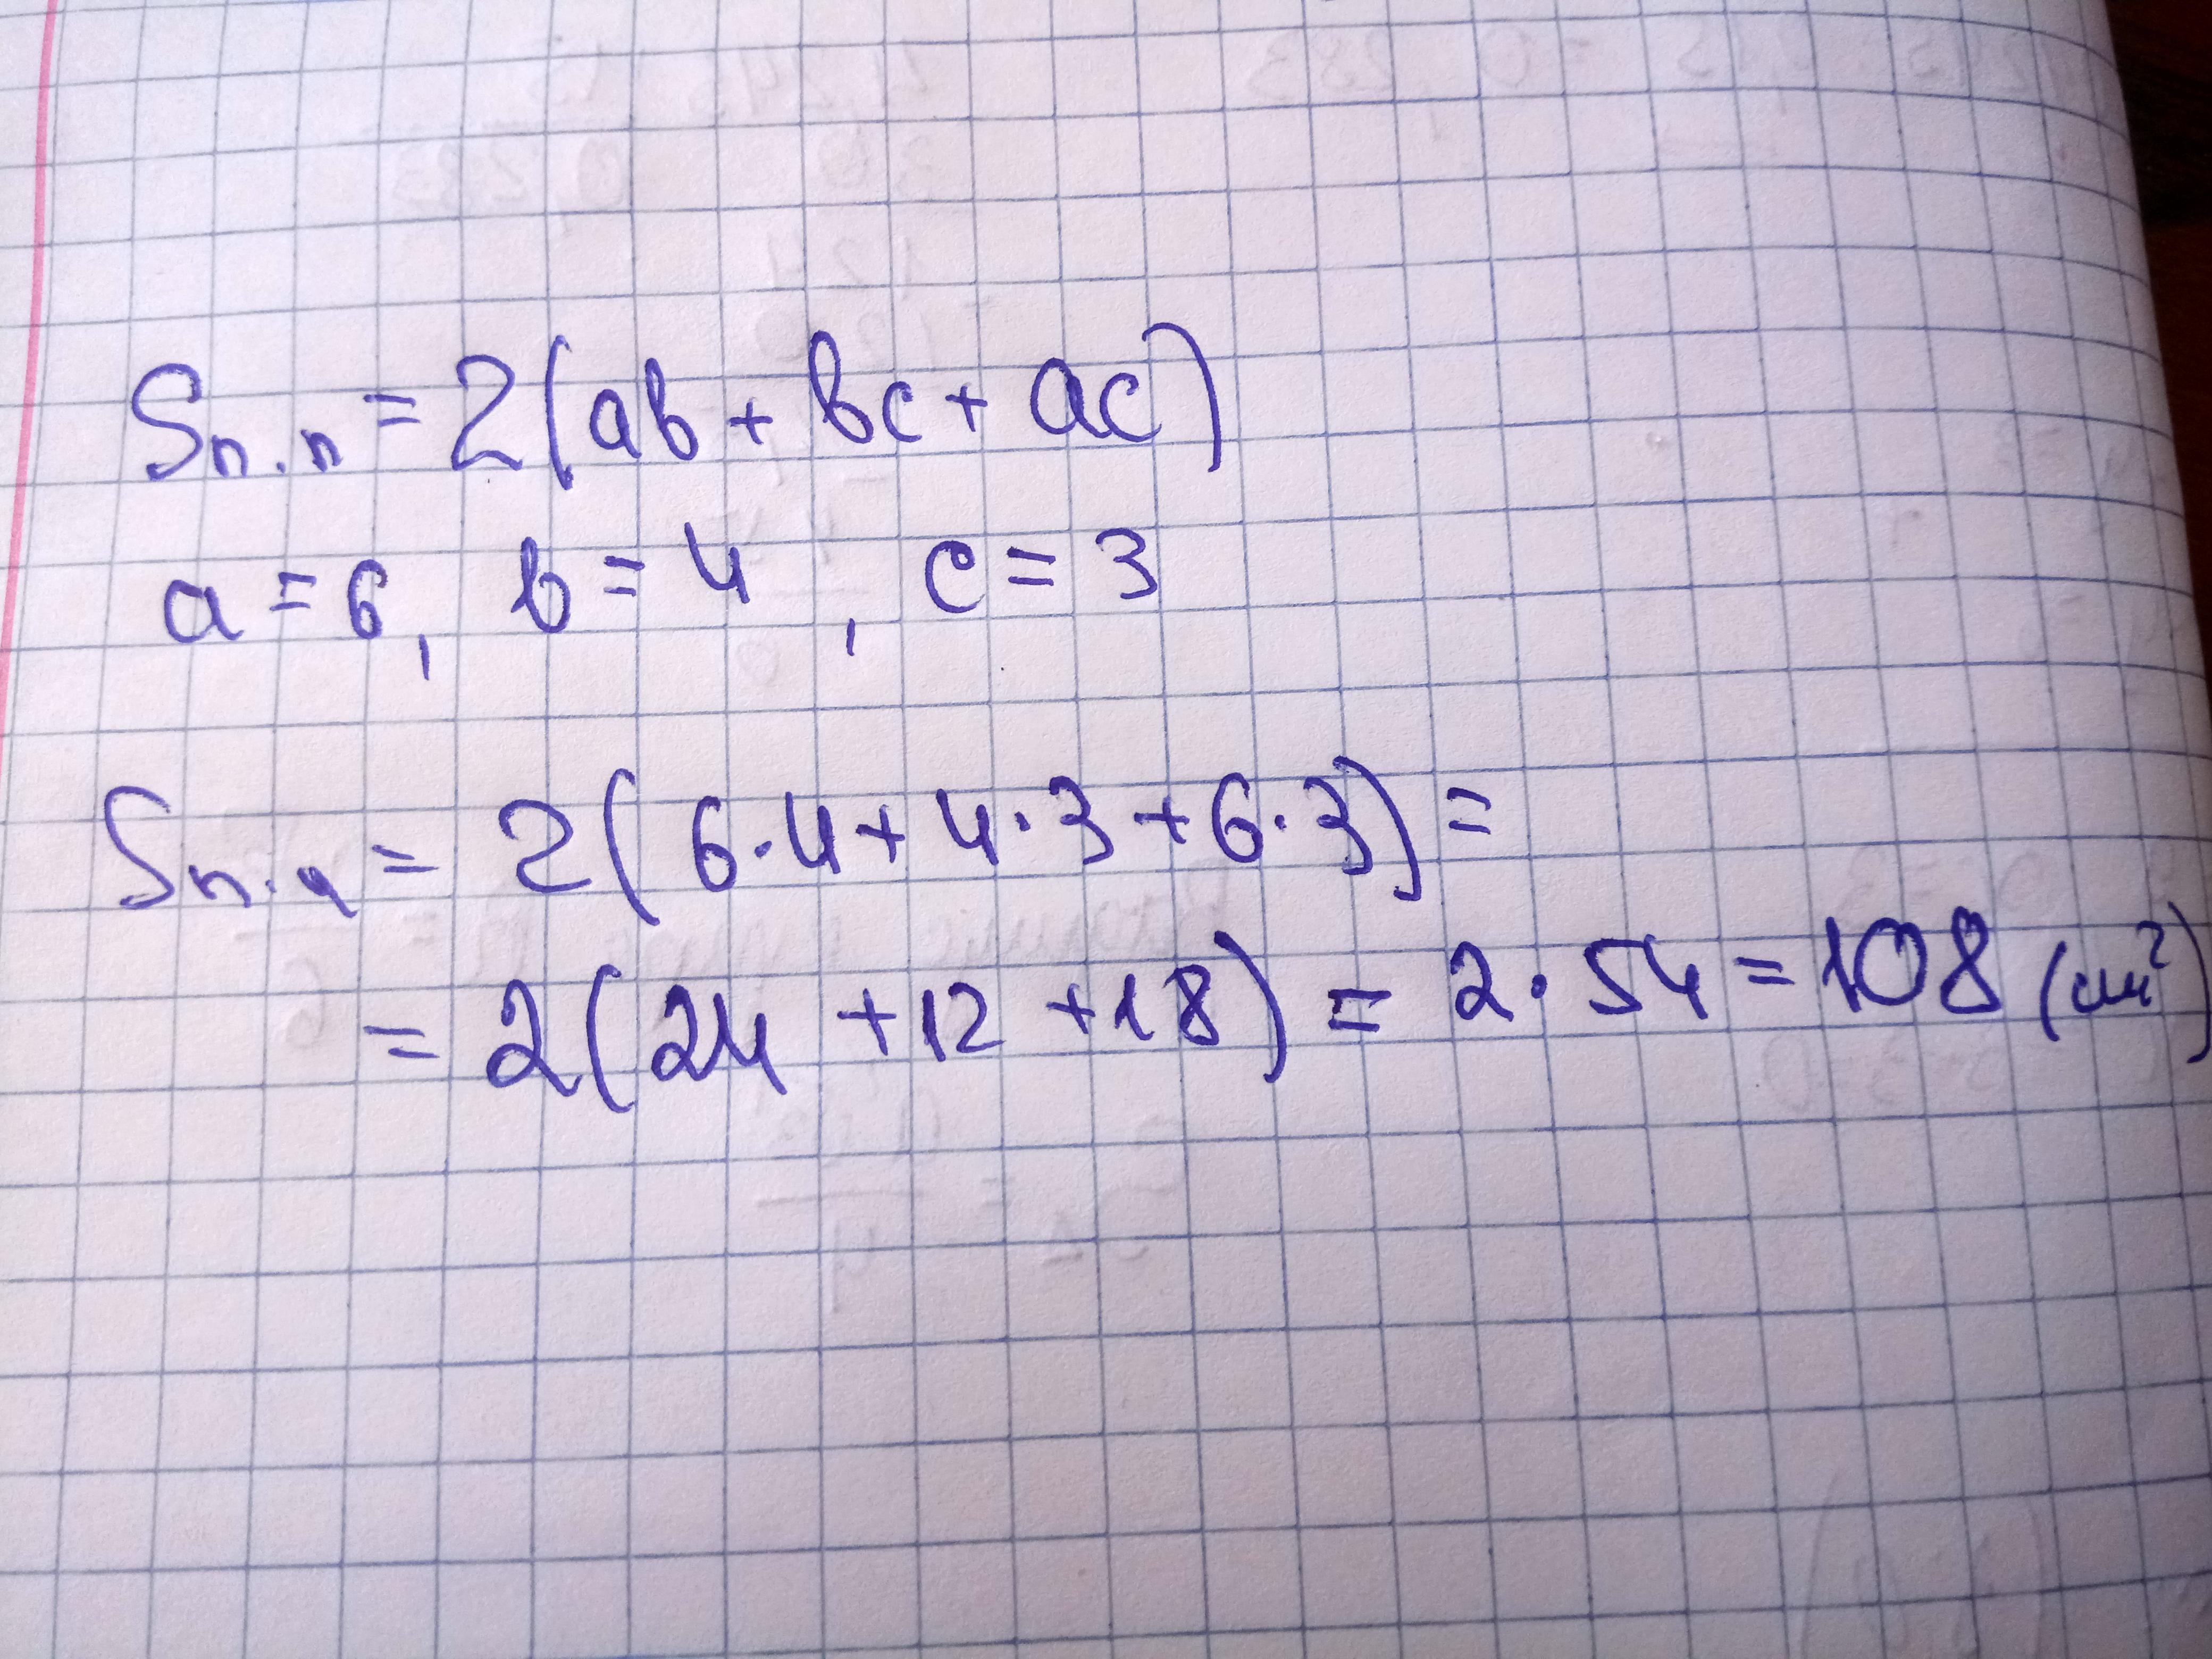 Sп.п = 2(ab + bc + ac)
a = 6, b = 4, c = 3
Sп.п = 2(6·4 + 4·3 + 6·3) =
= 2(24 + 12 + 18) = 2·54 = 108 (см²)